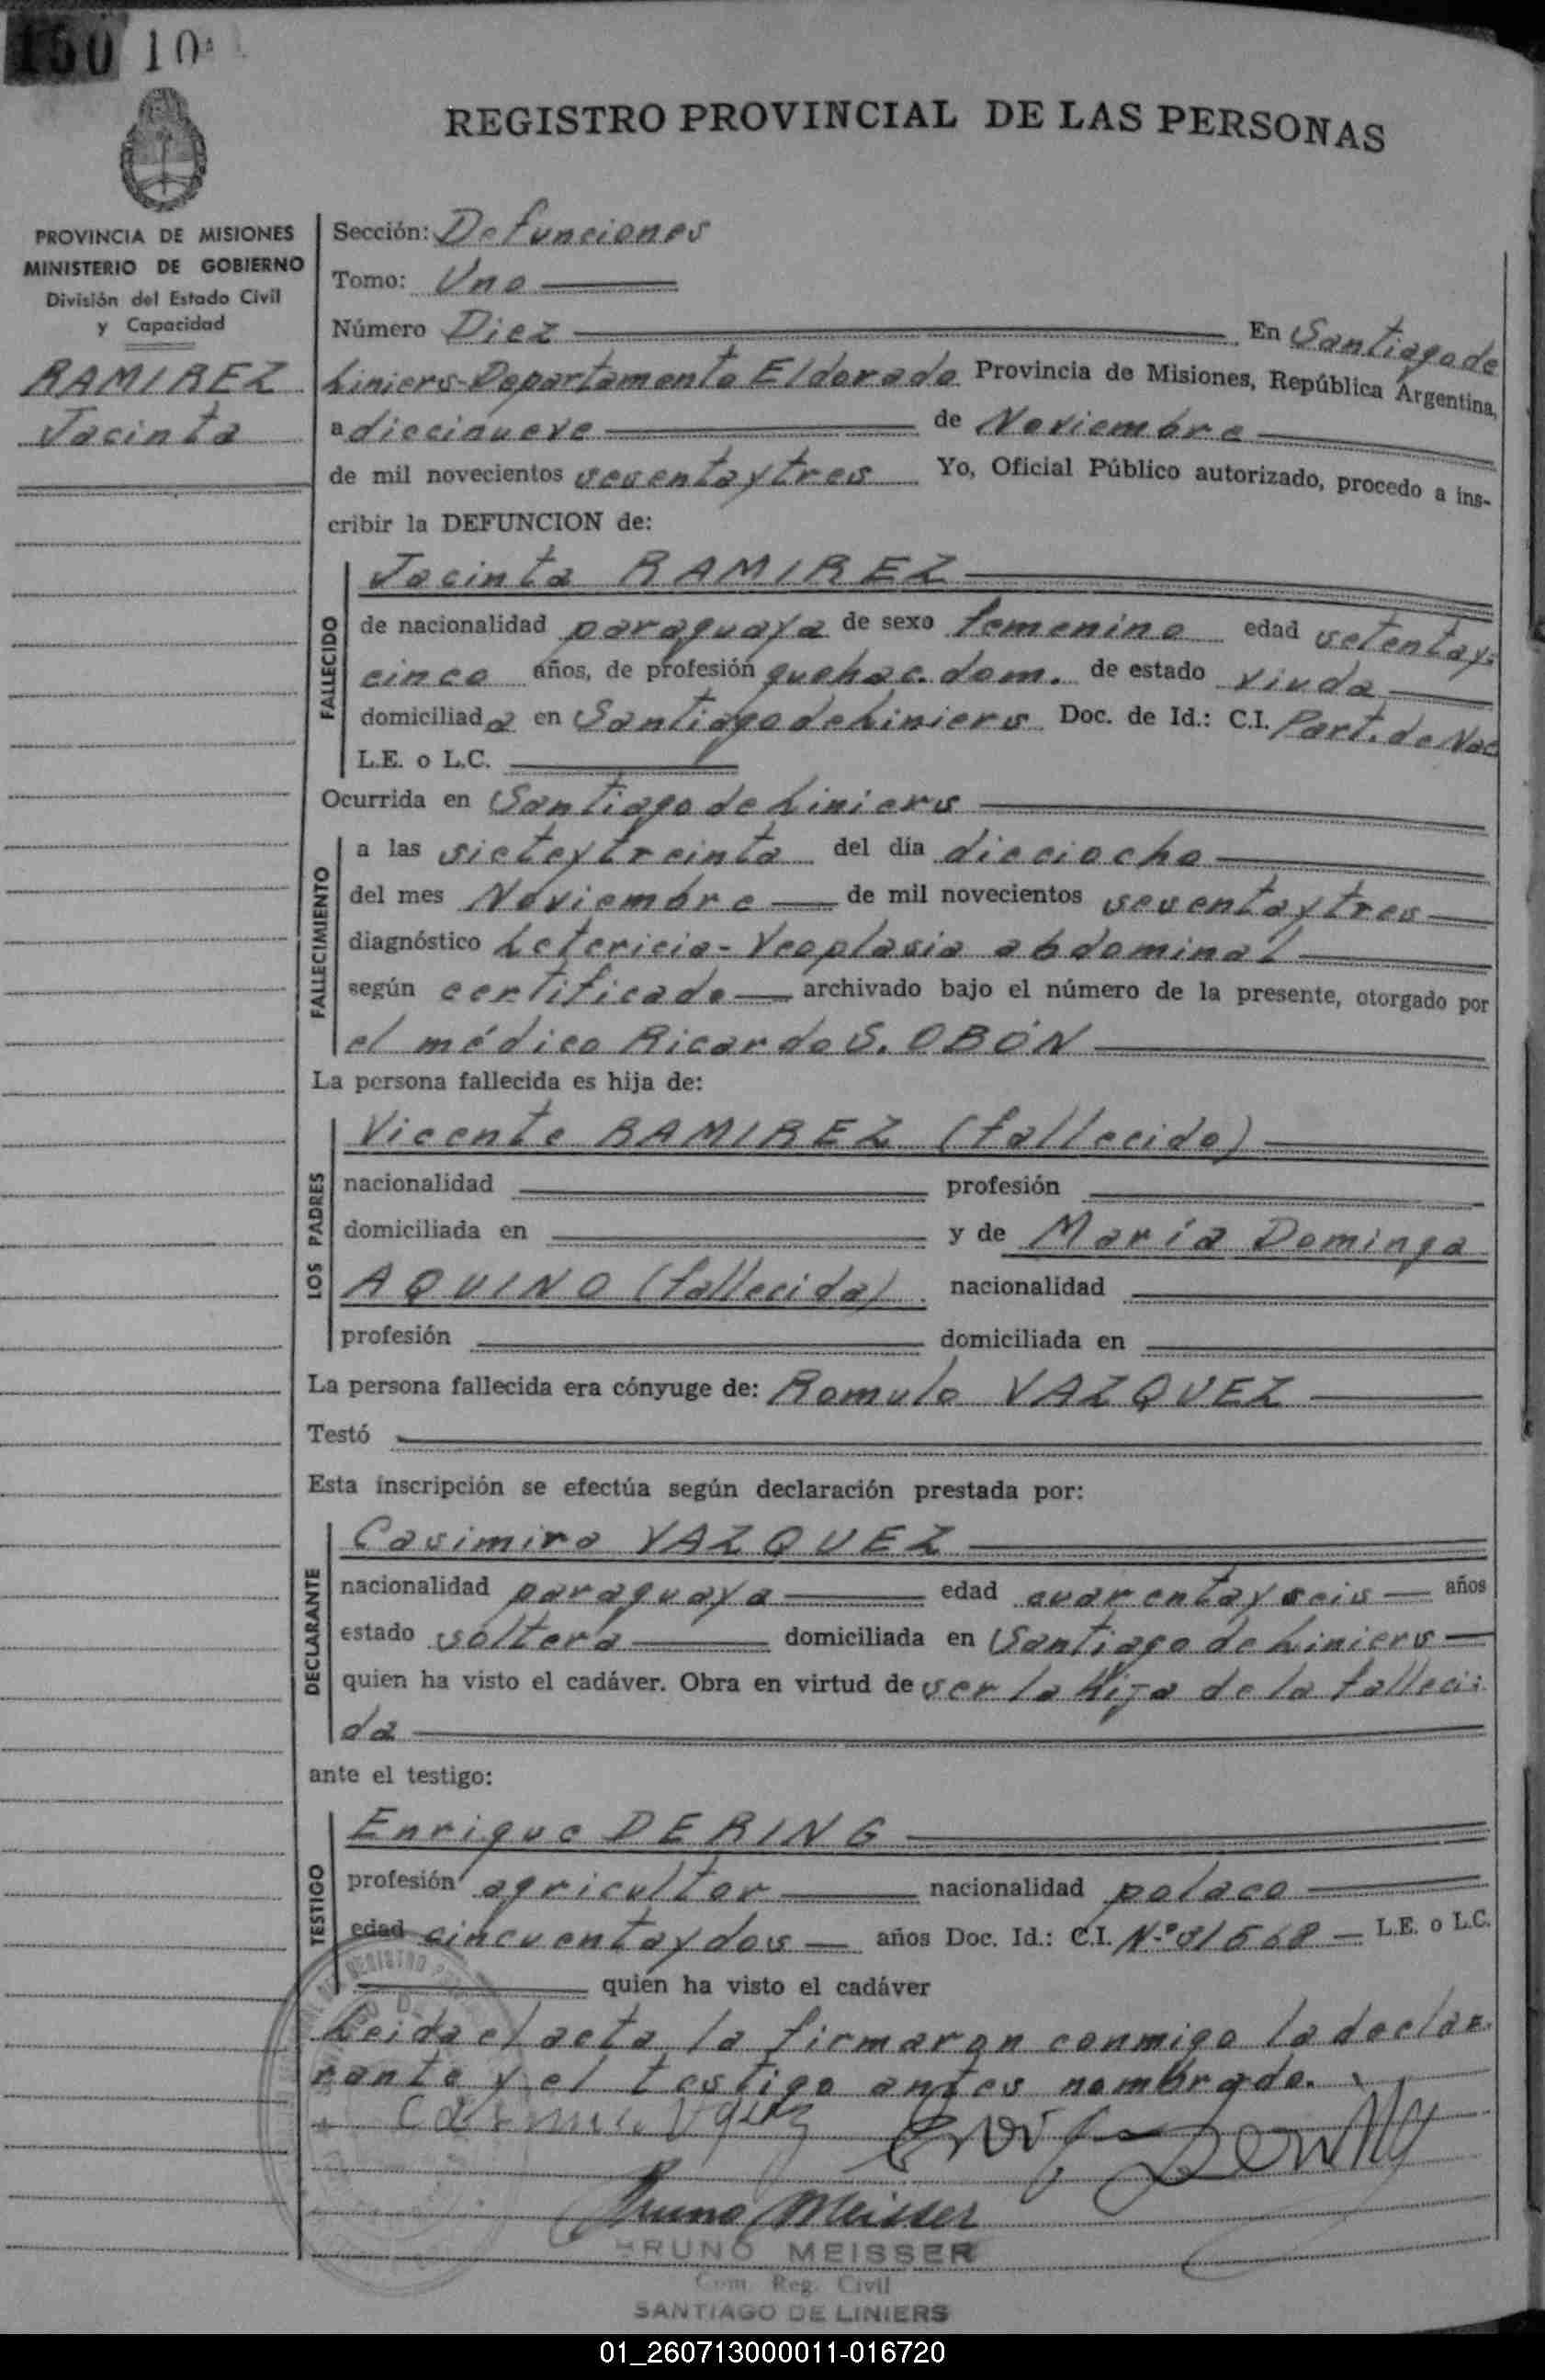 150 10
REGISTRO PROVINCIAL DE LAS PERSONAS
PROVINCIA DE MISIONES
MINISTERIO DE GOBIERNO
División del Estado Civil
y Capacidad
RAMIREZ
Jacinta
Sección: Defunciones
Tomo: Uno
Número Diez En Santiago de
Liniers-Departamento Eldorado Provincia de Misiones, República Argentina,
a diecinueve de Noviembre
de mil novecientos sesentaytres Yo, Oficial Público autorizado, procedo a ins-
cribir la DEFUNCION de:
FALLECIDO
Jacinta RAMIREZ
de nacionalidad paraguaya de sexo femenino edad setentay-
cinco años, de profesión quehac. dom. de estado viuda
domiciliada en Santiago de Liniers Doc. de Id.: C.I. Part. de Nac
L.E. o L.C.
Ocurrida en Santiago de Liniers
FALLECIMIENTO
a las sieteytreinta del día dieciocho
del mes Noviembre de mil novecientos sesentaytres
diagnóstico Letericia-Neoplasia abdominal
según certificado archivado bajo el número de la presente, otorgado por
el médico Ricardo S. OBÓN
La persona fallecida es hija de:
LOS PADRES
Vicente RAMIREZ (fallecido)
nacionalidad profesión
domiciliada en y de María Dominga
AQUINO (fallecida) nacionalidad
profesión domiciliada en
La persona fallecida era cónyuge de: Romulo VAZQUEZ
Testó
Esta inscripción se efectúa según declaración prestada por:
DECLARANTE
Casimira VAZQUEZ
nacionalidad paraguaya edad cuarentayseis años
estado soltera domiciliada en Santiago de Liniers
quien ha visto el cadáver. Obra en virtud de ser la Hija de la falleci-
da
ante el testigo:
TESTIGO
Enrique DERING
profesión agricultor nacionalidad polaco
edad cincuentaydos años Doc. Id.: C.I. N.º 31568 L.E. o L.C.
quien ha visto el cadáver
Leida el acta, la firmaron conmigo la decla-
rante y el testigo antes nombrado.
Bruno Meisser
BRUNO MEISSER
Com. Reg. Civil
SANTIAGO DE LINIERS
01_260713000011-016720